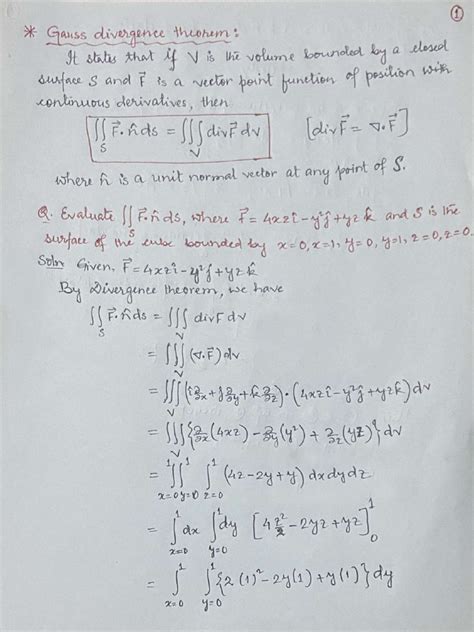 ①
* Gauss divergence theorem:
It states that if V is the volume bounded by a closed
surface S and F⃗ is a vector point function of position with
continuous derivatives, then
∬_S F⃗·n̂ ds = ∭_V div F⃗ dv [div F⃗ = ∇·F⃗]
where n̂ is a unit normal vector at any point of S.
Q. Evaluate ∬_S F⃗·n̂ ds, where F⃗ = 4xzî - y²ĵ + yzk̂ and S is the
surface of the cube bounded by x=0, x=1, y=0, y=1, z=0, z=0.
Soln Given, F⃗ = 4xzî - y²ĵ + yzk̂
By Divergence theorem, we have
∬_S F⃗·n̂ ds = ∭_V div F dv
= ∭_V (∇·F⃗) dv
= ∭_V (î ∂/∂x + ĵ ∂/∂y + k̂ ∂/∂z)·(4xzî - y²ĵ + yzk̂) dv
= ∭_V {∂/∂x (4xz) - ∂/∂y (y²) + ∂/∂z (yz)} dv
= ∫_{x=0}^1 ∫_{y=0}^1 ∫_{z=0}^1 (4z - 2y + y) dx dy dz
= ∫_{x=0}^1 dx ∫_{y=0}^1 dy [4 z²/2 - 2yz + yz]_0^1
= ∫_{x=0}^1 ∫_{y=0}^1 {2(1)² - 2y(1) + y(1)} dy